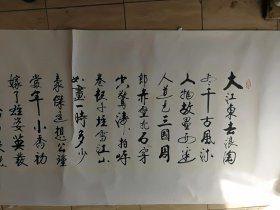 大江東去浪淘
尽千古風流
人物故壘西邊
人道是三國周
郎赤壁乱石穿
空驚濤拍岸
卷起千堆雪江山
如畫一時多少
豪傑遥想公瑾
當年小喬初
嫁了雄姿英發